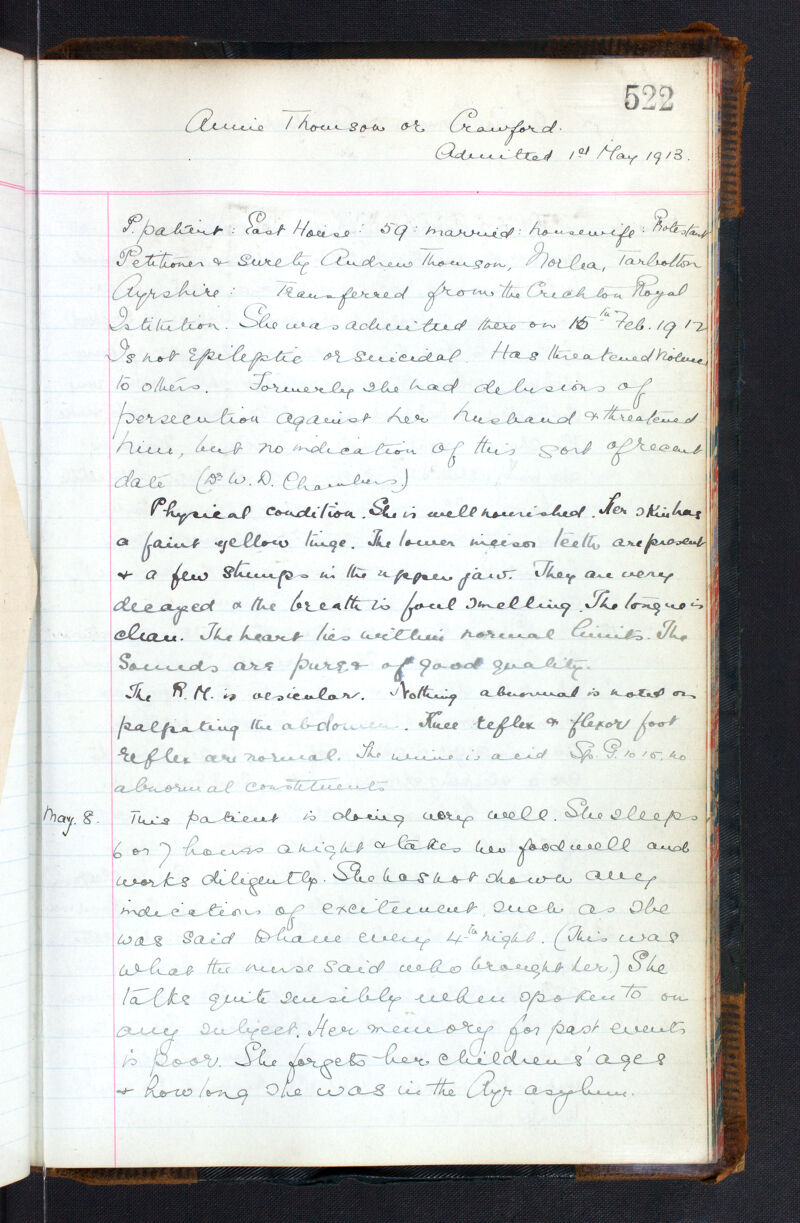 522
Annie Thomson or Crawford.
Admitted 1st May 1913.
P. patient : East House : 59 : married : housewife : Protestant
Petitioner & surety Andrew Thomson, Norlea, Tarbolton
Ayrshire : Transferred from the Crichton Royal
Istitution. She was admitted there on 15th Feb. 1912
Is not Epileptic or suicidal. Has threatened violence
to others. Formerly she had delusions of
persecution against her husband & threatened
him, but no indication of this sort of recent
date (Dr W. D. Chambers)
Physical condition. She is well nourished. Her skin has
a faint yellow tinge. The lower incisor teeth are present
& a few stumps in the upper jaw. They are very
decayed & the breath is foul smelling. The tongue is
clean. The heart lies within normal limits. The
Sounds are pure & of good quality.
The R.M. is vesicular. Nothing abnormal is noted on
palpating the abdomen. Knee reflex & flexor foot
reflex are normal. The urine is acid Sp. G. 1015, no
abnormal constituents
May. 8. This patient is doing very well. She sleeps
6 or 7 hours a night & takes her food well and
works diligently. She has not shown any
indication of excitement such as she
was said to have every 4th night. (This was
what the nurse said who brought her) She
talks quite sensibly when spoken to on
any subject. Her memory for past events
is poor. She forgets her childrens' ages
& how long she was in the Ayr asylum.